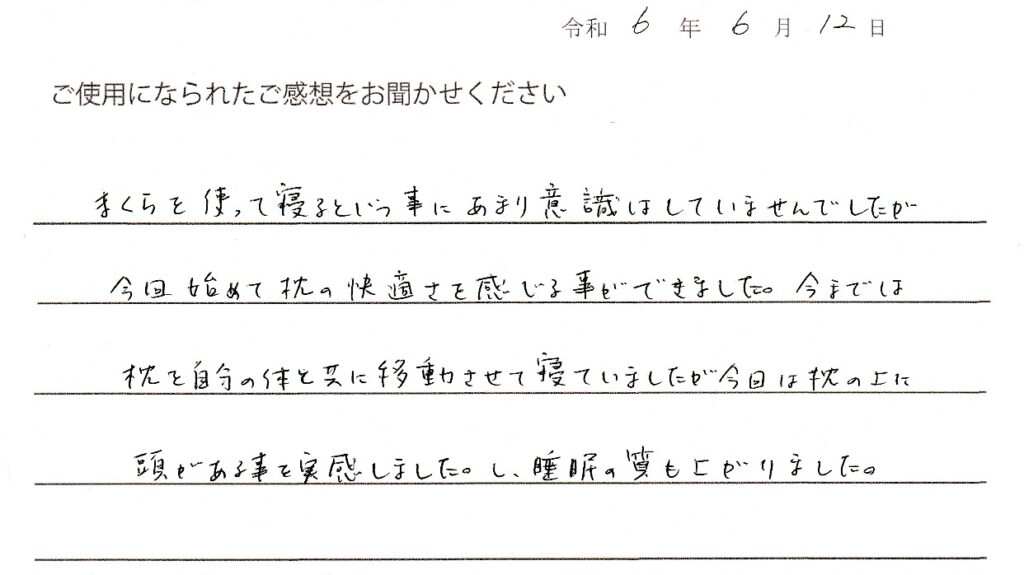 令和 6 年 6 月 12 日
ご使用になられたご感想をお聞かせください
まくらを使って寝るという事にあまり意識はしていませんでしたが
今回始めて枕の快適さを感じる事ができました。今までは
枕を自分の体と共に移動させて寝ていましたが今回は枕の上に
頭がある事を実感しました。し、睡眠の質も上がりました。